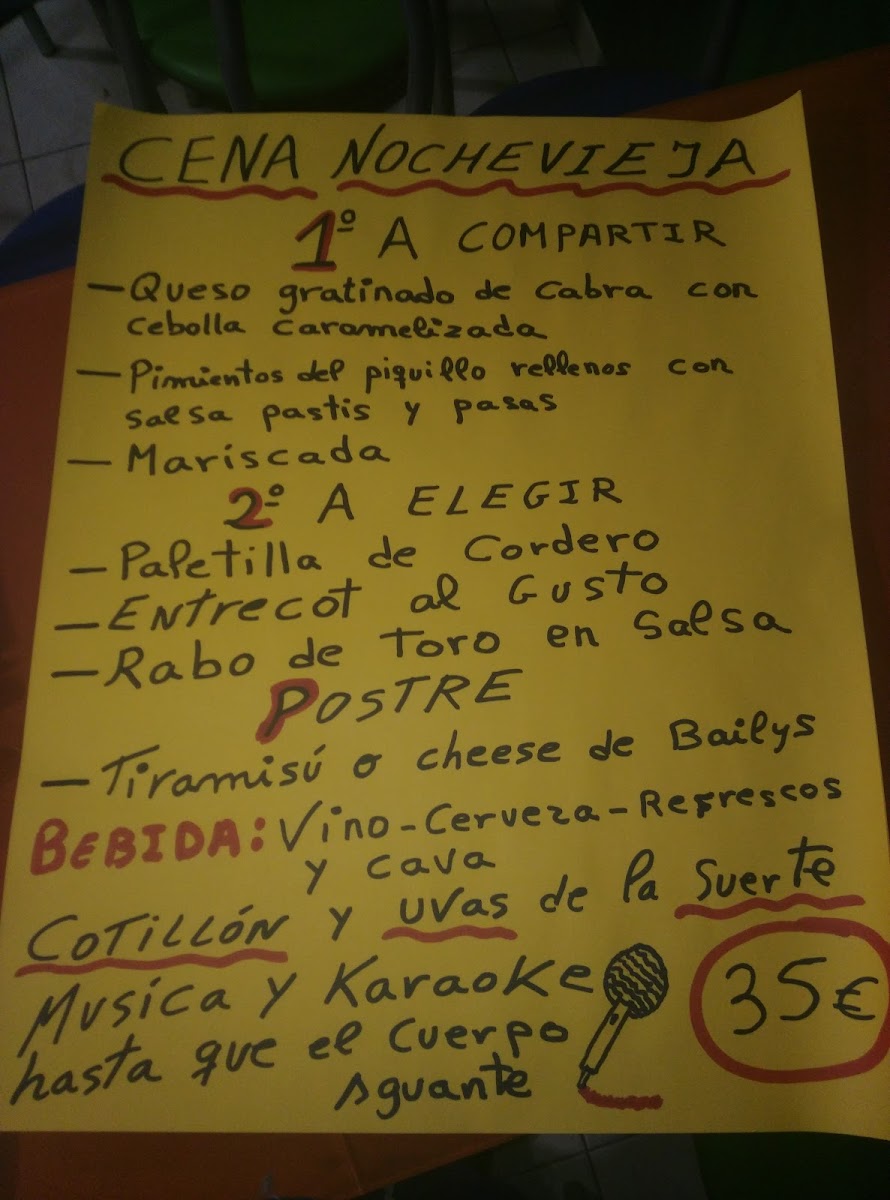 CENA NOCHEVIEJA
1º A COMPARTIR
- Queso gratinado de cabra con
cebolla caramelizada
- Pimientos del piquillo rellenos con
salsa pastis y pasas
- Mariscada
2º A ELEGIR
- Paletilla de Cordero
- Entrecot al Gusto
- Rabo de Toro en Salsa
POSTRE
- Tiramisú o cheese de Bailys
BEBIDA: Vino - Cerveza - Refrescos
y cava
COTILLÓN y uvas de la Suerte
Musica y Karaoke
hasta que el Cuerpo
Aguante
35€